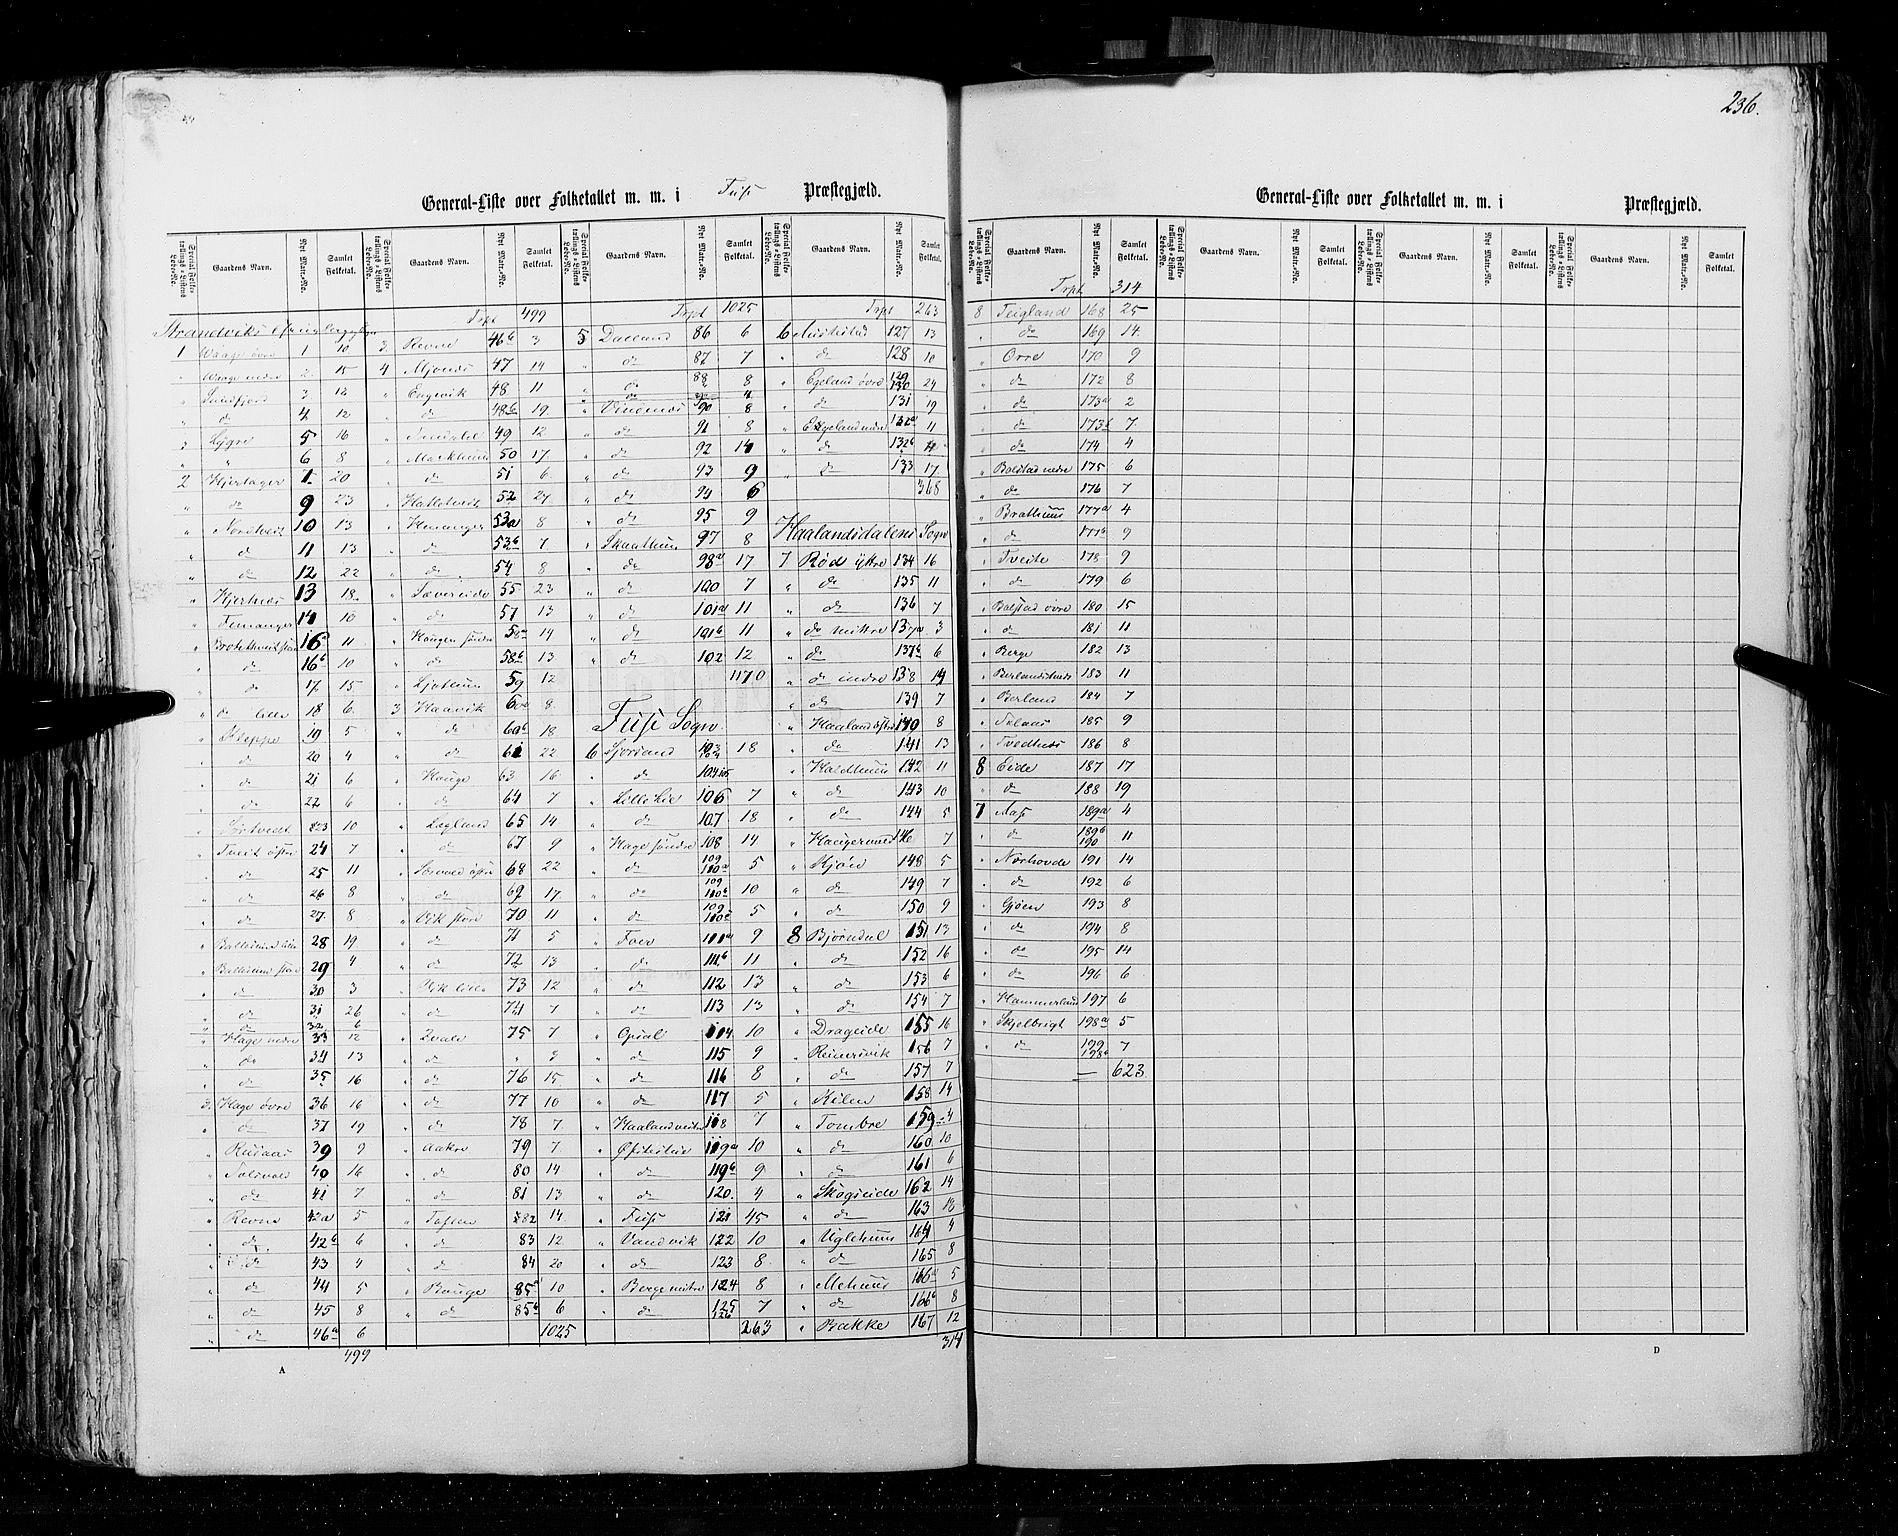 236.
General-Liste over Folketallet m. m. i Fuse Præstegjæld.
Special Folketællings-Listens Løbe-No. Gaardens Navn. Nyt Matr.-No. Samlet Folketal.
Strandviks
1 Waage øvre 1 10
" Waage nedre 2 15
" Sundfjord 3 12
" do 4 12
Lygre 5 16
" " 6 8
2 Hjertager 20
" do 9 23
" Nordtveit 10 13
" do 11 13
" do 12 22
" Hjertnes 13 18
" Femanger 14 10
16a 11
" do 16b 10
" do 17 15
" do lille 18 6
" Kleppe 19 5
" do 20 4
" do 21 6
" do 22 6
" Sørtvedt 23 10
" Tveit østre 24 7
" do 25 11
" do 26 8
" do 27 8
" 28 19
" 29 4
" do 30 3
" do 31 26
" do 32 6
" Hage nedre 33 12
" do 34 13
" do 35 16
3 Hage øvre 36 16
" do 37 19
" 39 9
" 40 16
" do 41 7
" Revne 42a 5
" do 42b 6
" do 43 4
" do 44 5
" do 45 8
" do 46a 6
499
Trpt 499
3 Revne 46b 3
4 Mjønes 47 14
" Engevik 48 11
" do 48b 19
" 49 12
" Markhuus 50 17
" do 51 6
" 52 27
" Henanger 53a 8
" do 53b 7
" do 54 8
" Sævereide 55 23
" do 57 13
" Haugen søndre 58a 14
" do 58b 13
" Ljothuus 59 12
3 Haavik 60a 8
" do 60b 18
" do 61 22
" Hauge 63 16
" do 64 7
" Lygland 65 14
" do 67 9
" 68 22
" do 69 17
" Vik store 70 11
" do 71 5
" do 72 13
" Vik lille 73 12
" do 74 7
" Kvale 75 7
" do " 9
" do 76 15
" do 77 10
" do 78 7
" Aakre 79 7
" do 80 14
" do 81 13
" Toften 82 14
" do 83 12
" do 84 20
" Bauge 85a 10
" do 85b 6
1025
Trpt 1025
5 Dalland 86 6
" do 87 7
" do 88 8
" Vinenes 90 8
" do 91 8
" do 92 14
" do 93 9
" do 94 6
" do 95 9
" Skaathuus 97 8
" do 98a 17
" do 100 7
" do 101a 11
" do 101b 11
" do 102 12
1170
Fuse Sogn
6 103 18
" do 104
" Lille Lie 106 7
" do 107 18
" Hage søndre 108 14
" do 109 110a 5
" do 109 110b 10
" do 109 110c 5
" 111a 9
" do 111b 11
" do 112 13
" do 113 13
" Opsal 114 10
" do 115 9
" do 116 8
" do 117 5
" 118 7
" 119a 10
" do 119b 9
" do 120 4
" Fuse 121 45
" Vandvik 122 10
" do 123 8
" 124 8
" do 125 126 7
263
Trpt 263
6 127 13
" do 128 10
" Egeland øvre 129 130 24
" do 131 19
" Egeland nedre 132a 11
" do 132b
" do 133 17
368
Haalandsdalens Sogn
7 Rød ytre 134 16
" do 135 11
" do 136 7
" do mittre 137a 3
" do 137b 6
" do indre 138 14
" do 139 7
" 140 8
" do 141 13
" Holdhuus 142 11
" do 143 10
" do 144 5
" 146 7
" Mjøen 148 5
" do 149 7
" do 150 9
8 Bjørndal 151 13
" do 152 16
" do 153 6
" do 154 7
" Drageide 155 16
" Reinersvik 156 7
" do 157 7
" Kilen 158 14
" Tombre 159 4
" do 160 10
" do 161 6
" Skogseide 162 14
" do 163 18
" Uglehuus 164 4
" do 165 8
" Mehuus 166a 5
" do 166b 8
" Bakke 167 12
314
A
General-Liste over Folketallet m. m. i Præstegjæld.
Special Folketællings-Listens Løbe-No. Gaardens Navn. Nyt Matr.-No. Samlet Folketal.
Trpt 314
8 Teigland 168 25
" do 169 14
" Orre 170 9
" do 172 8
" do 173a 2
" do 173b 7
" do 174 4
" Bolstad nedre 175 6
" do 176 7
" Brathuus 177a 4
" do 177b 9
" Tveite 178 9
" do 179 6
" Bolstad øvre 180 15
" do 181 11
" Berge 182 13
" 183 11
" Berland 184 7
" 185 9
" Tvedtnes 186 8
8 Eide 187 17
" do 188 19
7 Aase 189a 4
" do 189b 190 11
" Nørhovde 191 14
" do 192 6
" Gjøen 193 8
" do 194 8
" do 195 14
" do 196 6
" Hammerland 197 6
" Skjelbreigt 198a 5
" do 199 198b 7
— 623.
D